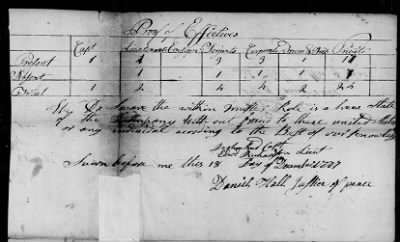 Proof of Effectives
Capt Lieutenants Ensign Serjants Corporals Drum & Fife Privates
Present 1 1 1 3 3 1
Absent 1 1 1
Total 1 2 4 4 2 24
We Do Swear the within Muster Role is a true State
of the Company without fraud to these united States
or any individual according to the Best of our Knowledge
Capt
Lieut
Sworn before me this 18 Day of December 1777
Daniel Hall Justice of peace